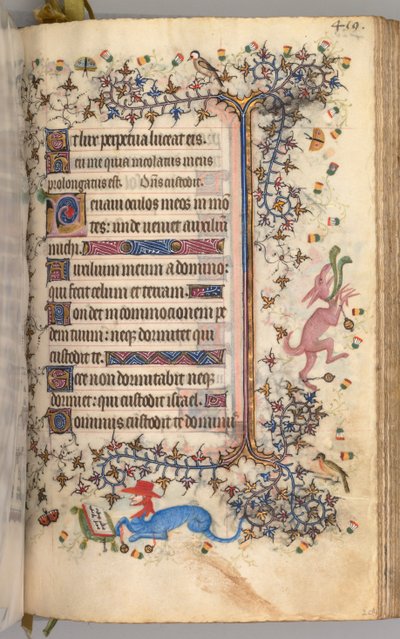 469.
Et lux perpetua luceat eis.
Heu me quia incolatus meus
prolongatus est. Dn̄s custodit.
Leuaui oculos meos in mō
tes: unde ueniet auxiliū
michi.
Auxilium meum a domino:
qui fecit celum et terram.
Non det in commocionem pe
dem tuum: neqꝫ dormitet qui
custodit te.
Ecce non dormitabit neqꝫ
dormiet: qui custodit israel.
Dominus custodit te dominꝰ